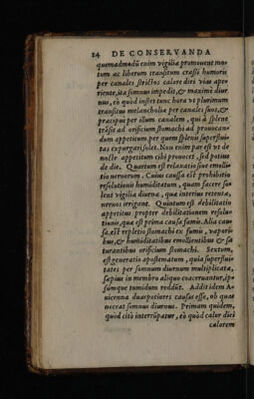 14 DE CONSERVANDA
quemadmodũ enim vigilia promouent mo-
tum ac liberum transitum crassi humoris
per canales strictos calore diei vias ape
riente, ita somnus impedit, & maximè diur
nus, eò quòd instet tunc hora vt plurimum
transitus melancholiæ per canales suos, &
præcipuè per illum canalem, qui à splene
trãsit ad orificium stomachi ad prouocan-
dum appetitum, per quem splenis superflui-
tas expurgari solet. Non enim par est vt de
nocte appetitum cibi prouocet, sed potius
de die. Quartum est relaxatio siue emolli-
tio neruorum. Cuius causa est prohibitio
resolutionis humiditatum, quam facere so-
lent vigiliæ diurnæ, quæ interius retenta,
neruos irrigant. Quintum est debilitatio
appetitus propter debilitationem resolu-
tionis, quæ est prima causa famis. Alia cau-
sa, est repletio stomachi ex fumis, vapori-
bus, & humiditatibus emollientibus & ob
turantibus orificium stomachi. Sextum,
est generatio apostematum, quia superflui-
tates per somnum diurnum multiplicatæ,
sæpius in membro aliquo coaceruantur, ip-
súmque tumidum reddũt. Addit idem A-
uicenna duas potiores causas esse, ob quas
nocet somnus diurnus. Primam quidem,
quòd citò interrũpatur, eò quòd calor diei
calorem